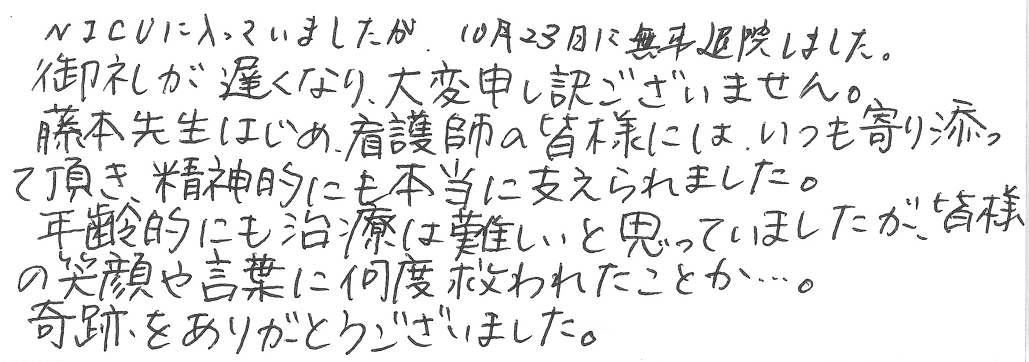 NICUに入っていましたが、10月23日に無事退院しました。
御礼が遅くなり、大変申し訳ございません。
藤本先生はじめ、看護師の皆様には、いつも寄り添っ
て頂き、精神的にも本当に支えられました。
年齢的にも治療は難しいと思っていましたが、皆様
の笑顔や言葉に何度救われたことか…。
奇跡をありがとうございました。